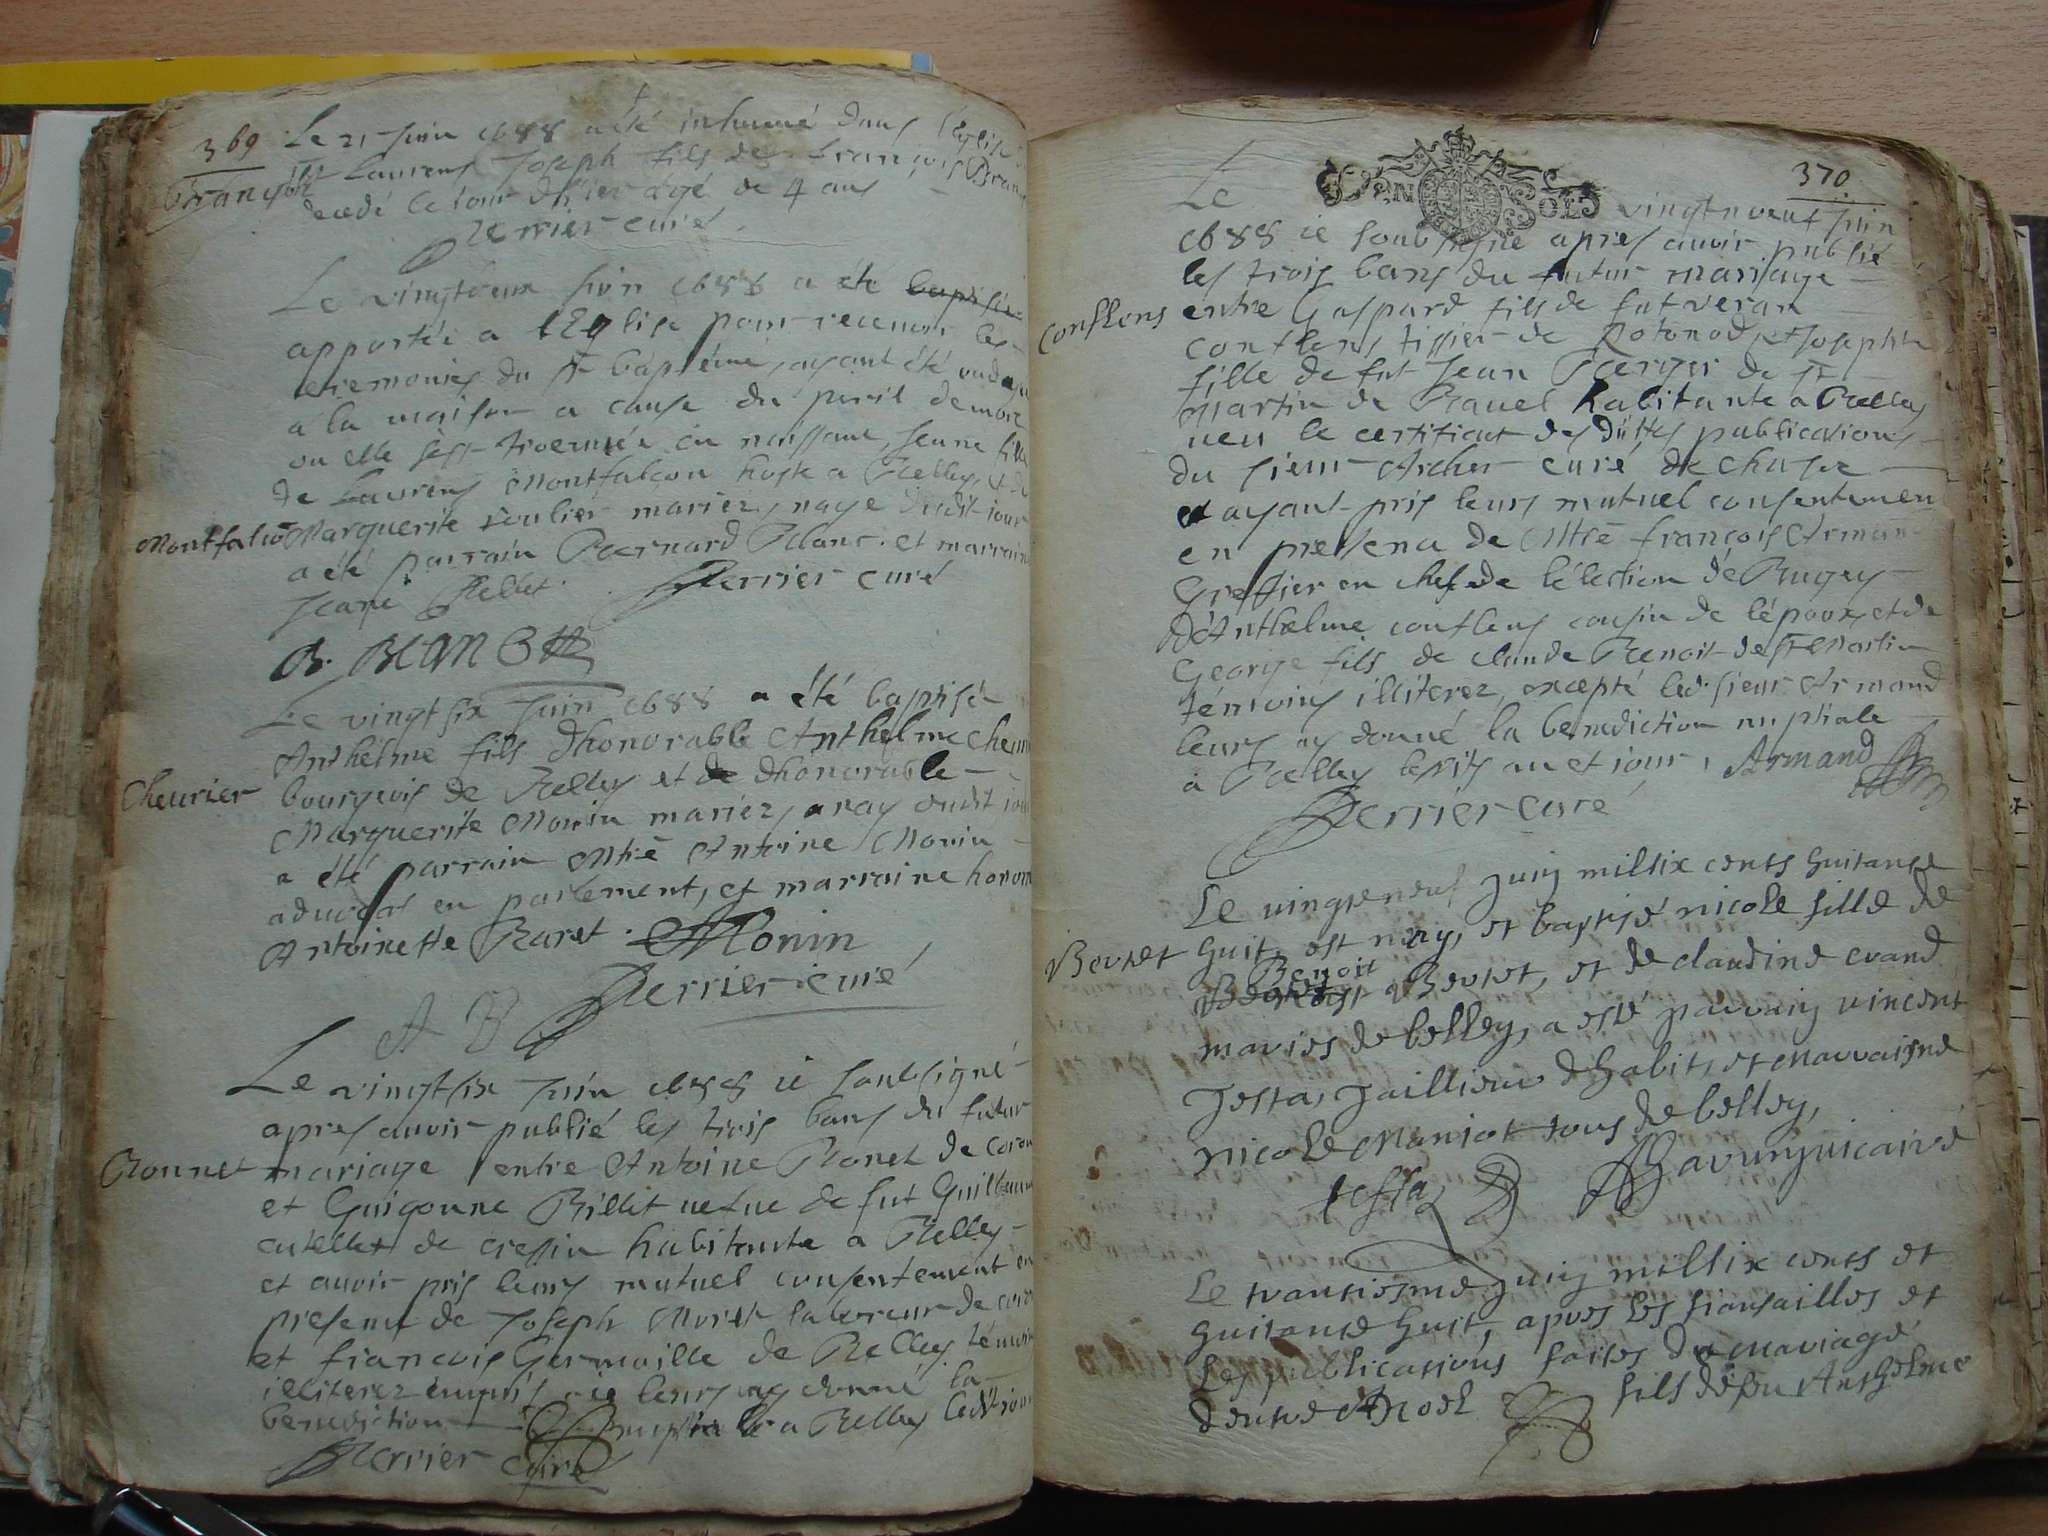 369
Le 21 Juin 1688 a été inhumé dans l'Eglise
françois Laurens Joseph fils de françois
decedé le jour d'hier agé de 4 ans
Perrier curé
Le vingtdeux Juin 1688 a été baptisée
apportée a l'Eglise pour recevoir les
ceremonies du st baptéme, ayant été
a la maison a cause du peril de mort
ou elle s'est trouvée en naissant, Jeane fille
de Laurens Montfalcon hoste a Belley, et de
Montfalcō Marguerite Roulier mariez, naye dudit jour
a été parrain Bernard Blanc. et marraine
Jeane Bellet. Perrier curé
B. BLANC
Le vingtsix Juin 1688 a été baptisé
Anthelme fils d'honorable Anthelme
Cheurier bourgeois de Belley et de d'honorable
Marguerite Monin mariez, nay dudit jour
a été parrain Mtrē Antoine Monin
aduocat en parlement, et marraine
Antoinette Baret. Monin
Perrier curé
A B
Le vingtsix Juin 1688 ie soubsigné
apres auoir publié les trois bans du futur
Bonnet mariage entre Antoine Bonet de
et Guigonne Billet uefue de fut Guillaume
cutellet de cressin habitante a Belley
et auoir pris leurs mutuel consentement en
presence de Joseph laboureur de
et francois Germaille de Belley témoins
illiterez ie leurs ay donné la
benediction nuptiale a Belley ledit jour
Perrier curé
370
DEN SOLS
Le vingtneuf Juin
1688 ie soubsigne apres auoir publié
les trois bans du futur mariage
conflens entre Gaspard fils de fut veran
conflens tissier de et Josephte
fille de fut Jean Berger de st
Martin de Bauel habitante a Belley
ueu le certificat desdittes publications
du sieur Archer curé de
et ayant pris leurs mutuel consentement
en presence de Mtrē françois Armand
Greffier en chef de l'élection de Bugey
d'Anthelme conflens cousin de l'époux, et de
George fils de claude Benoit de st Martin
témoins illiterez, excepté led. sieur Armand
leurs ay donné la benediction nuptiale
a Belley lesdits an et jour, Armand
Perrier curé
Le vingtneuf Juin mil six cents huitante
Beutet huit, est nay, et baptisé nicole fille de
Benoit Beutet, et de claudine
maries de belley, a esté parrain vincent
Testa, Tailleur d'habit, et marraine
nicole Maniot tous de belley,
testa vicaire
Le trantiesme Juin mil six cents et
huitante huit, apres les fiansailles et
les publications faites du Mariage
d'entre Noel fils de feu Anthelme